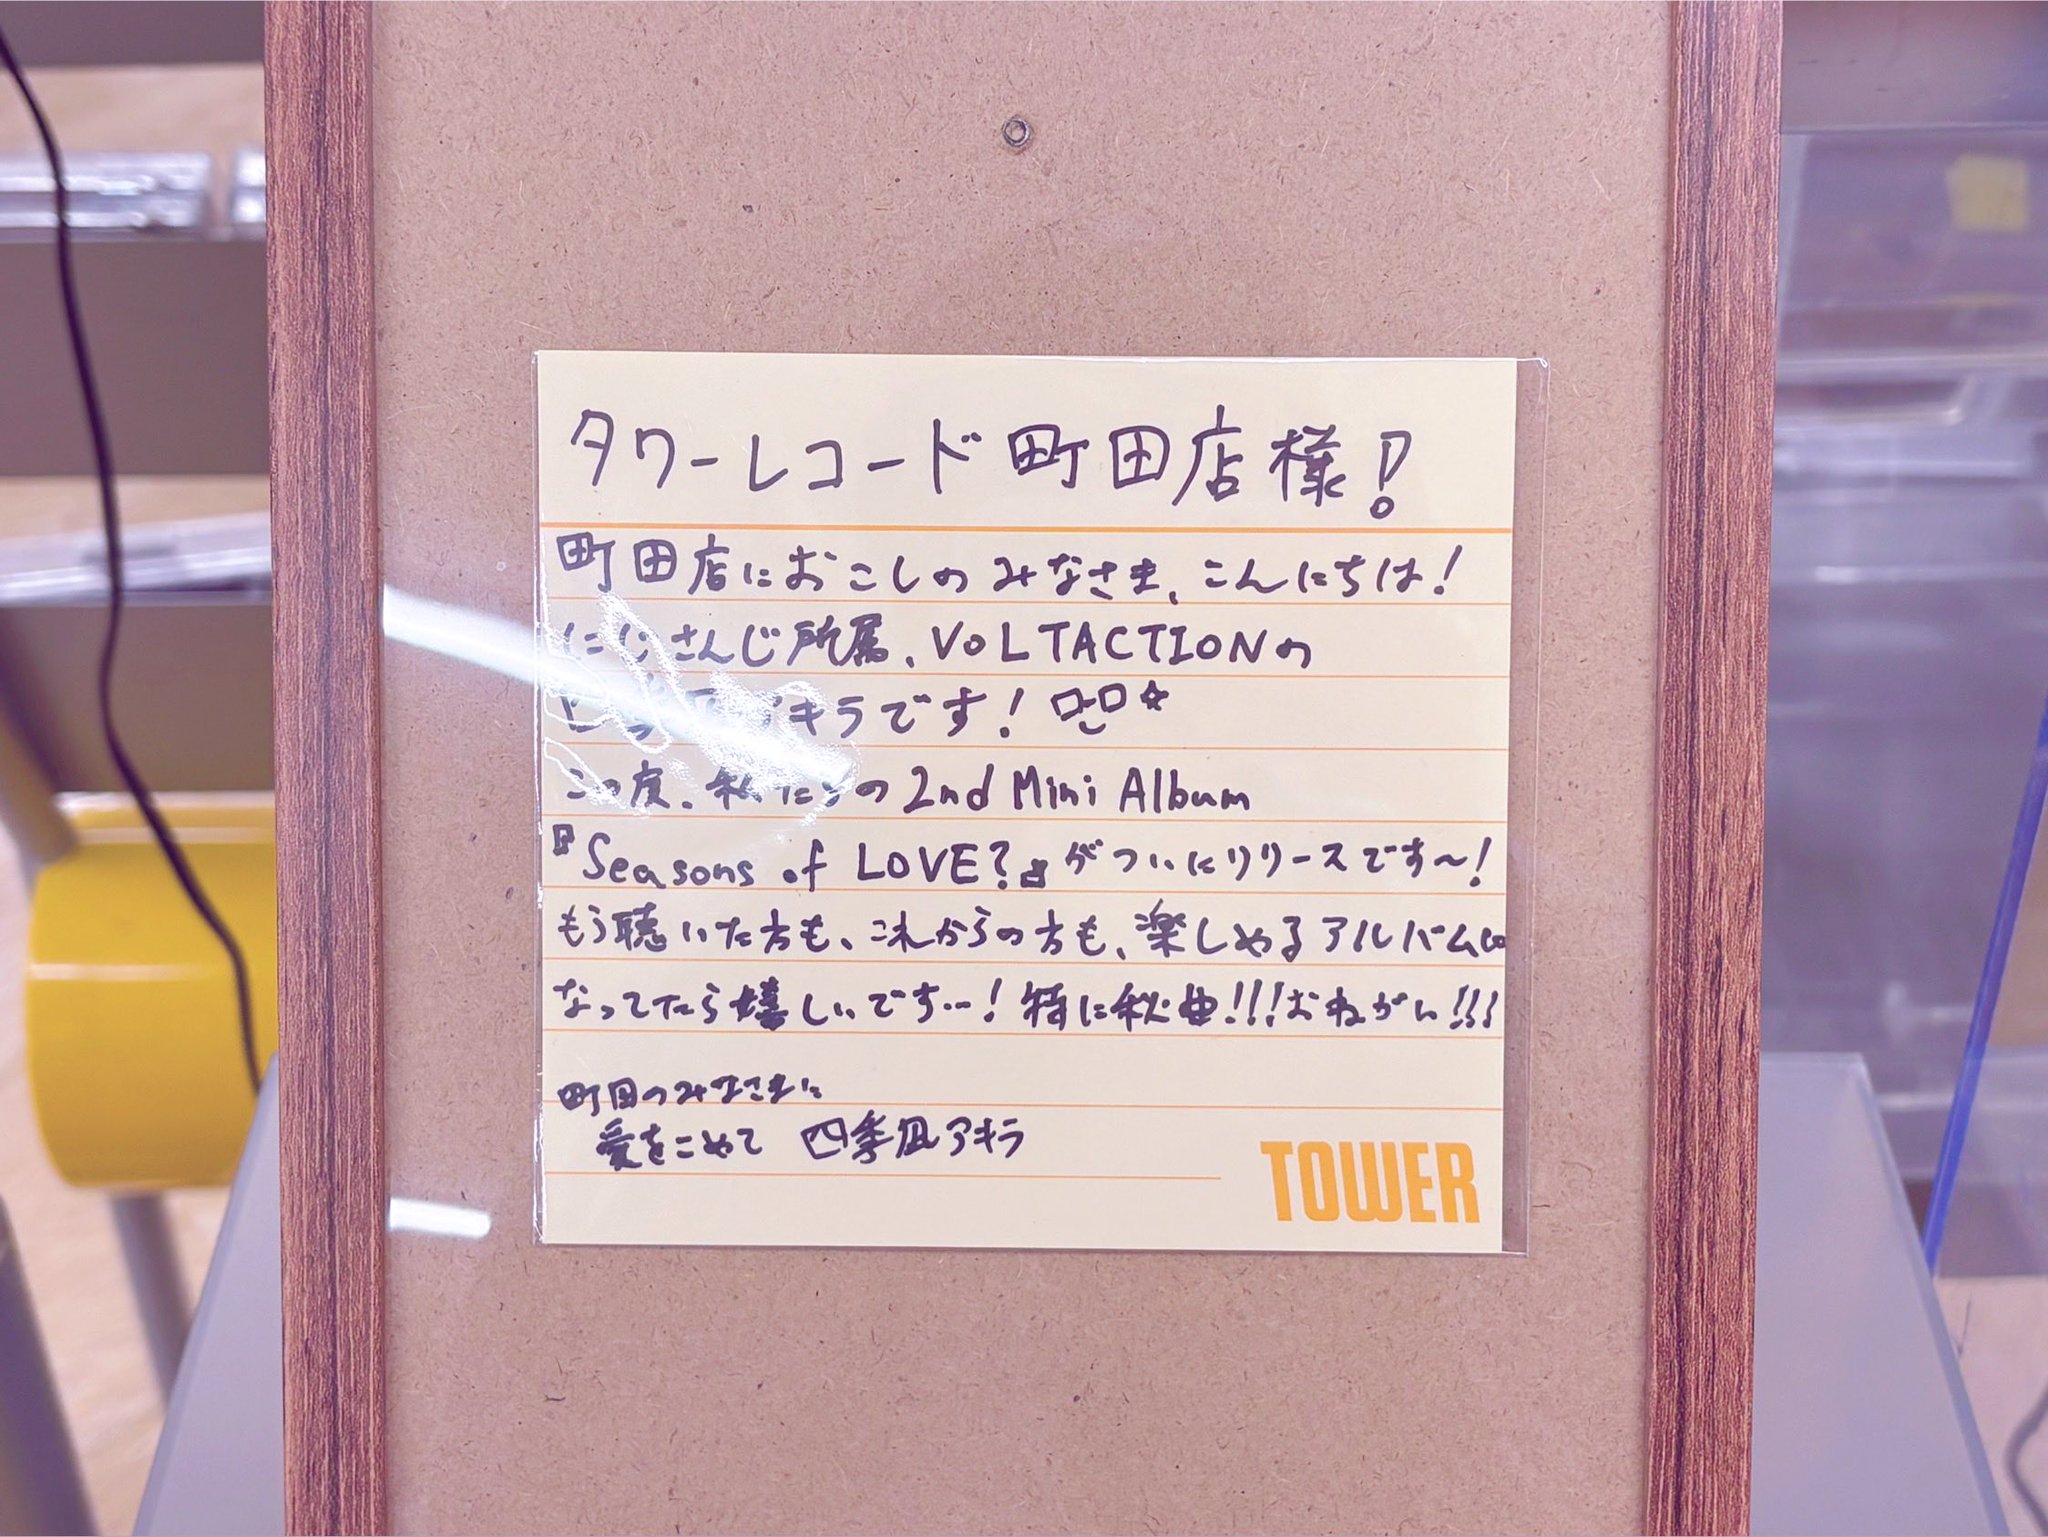 タワーレコード町田店様!
町田店におこしのみなさま、こんにちは!
にじさんじ所属、VOLTACTIONの
四季凪アキラです!
この度、私たちの2nd Mini Album
『Seasons of LOVE?』がついにリリースです〜!
もう聴いた方も、これからの方も、楽しめるアルバムに
なってたら嬉しいです…!特に秋曲!!!おねがい!!!
町田のみなさまに
愛をこめて 四季凪アキラ
TOWER